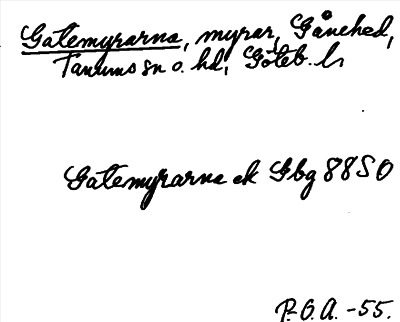 Gatemyrarna, myrar, Gånehed,
Tanums sn o. hd, Göteb. l.
Gatemyrarna ek Gbg 88SO
P.O.A. -55.